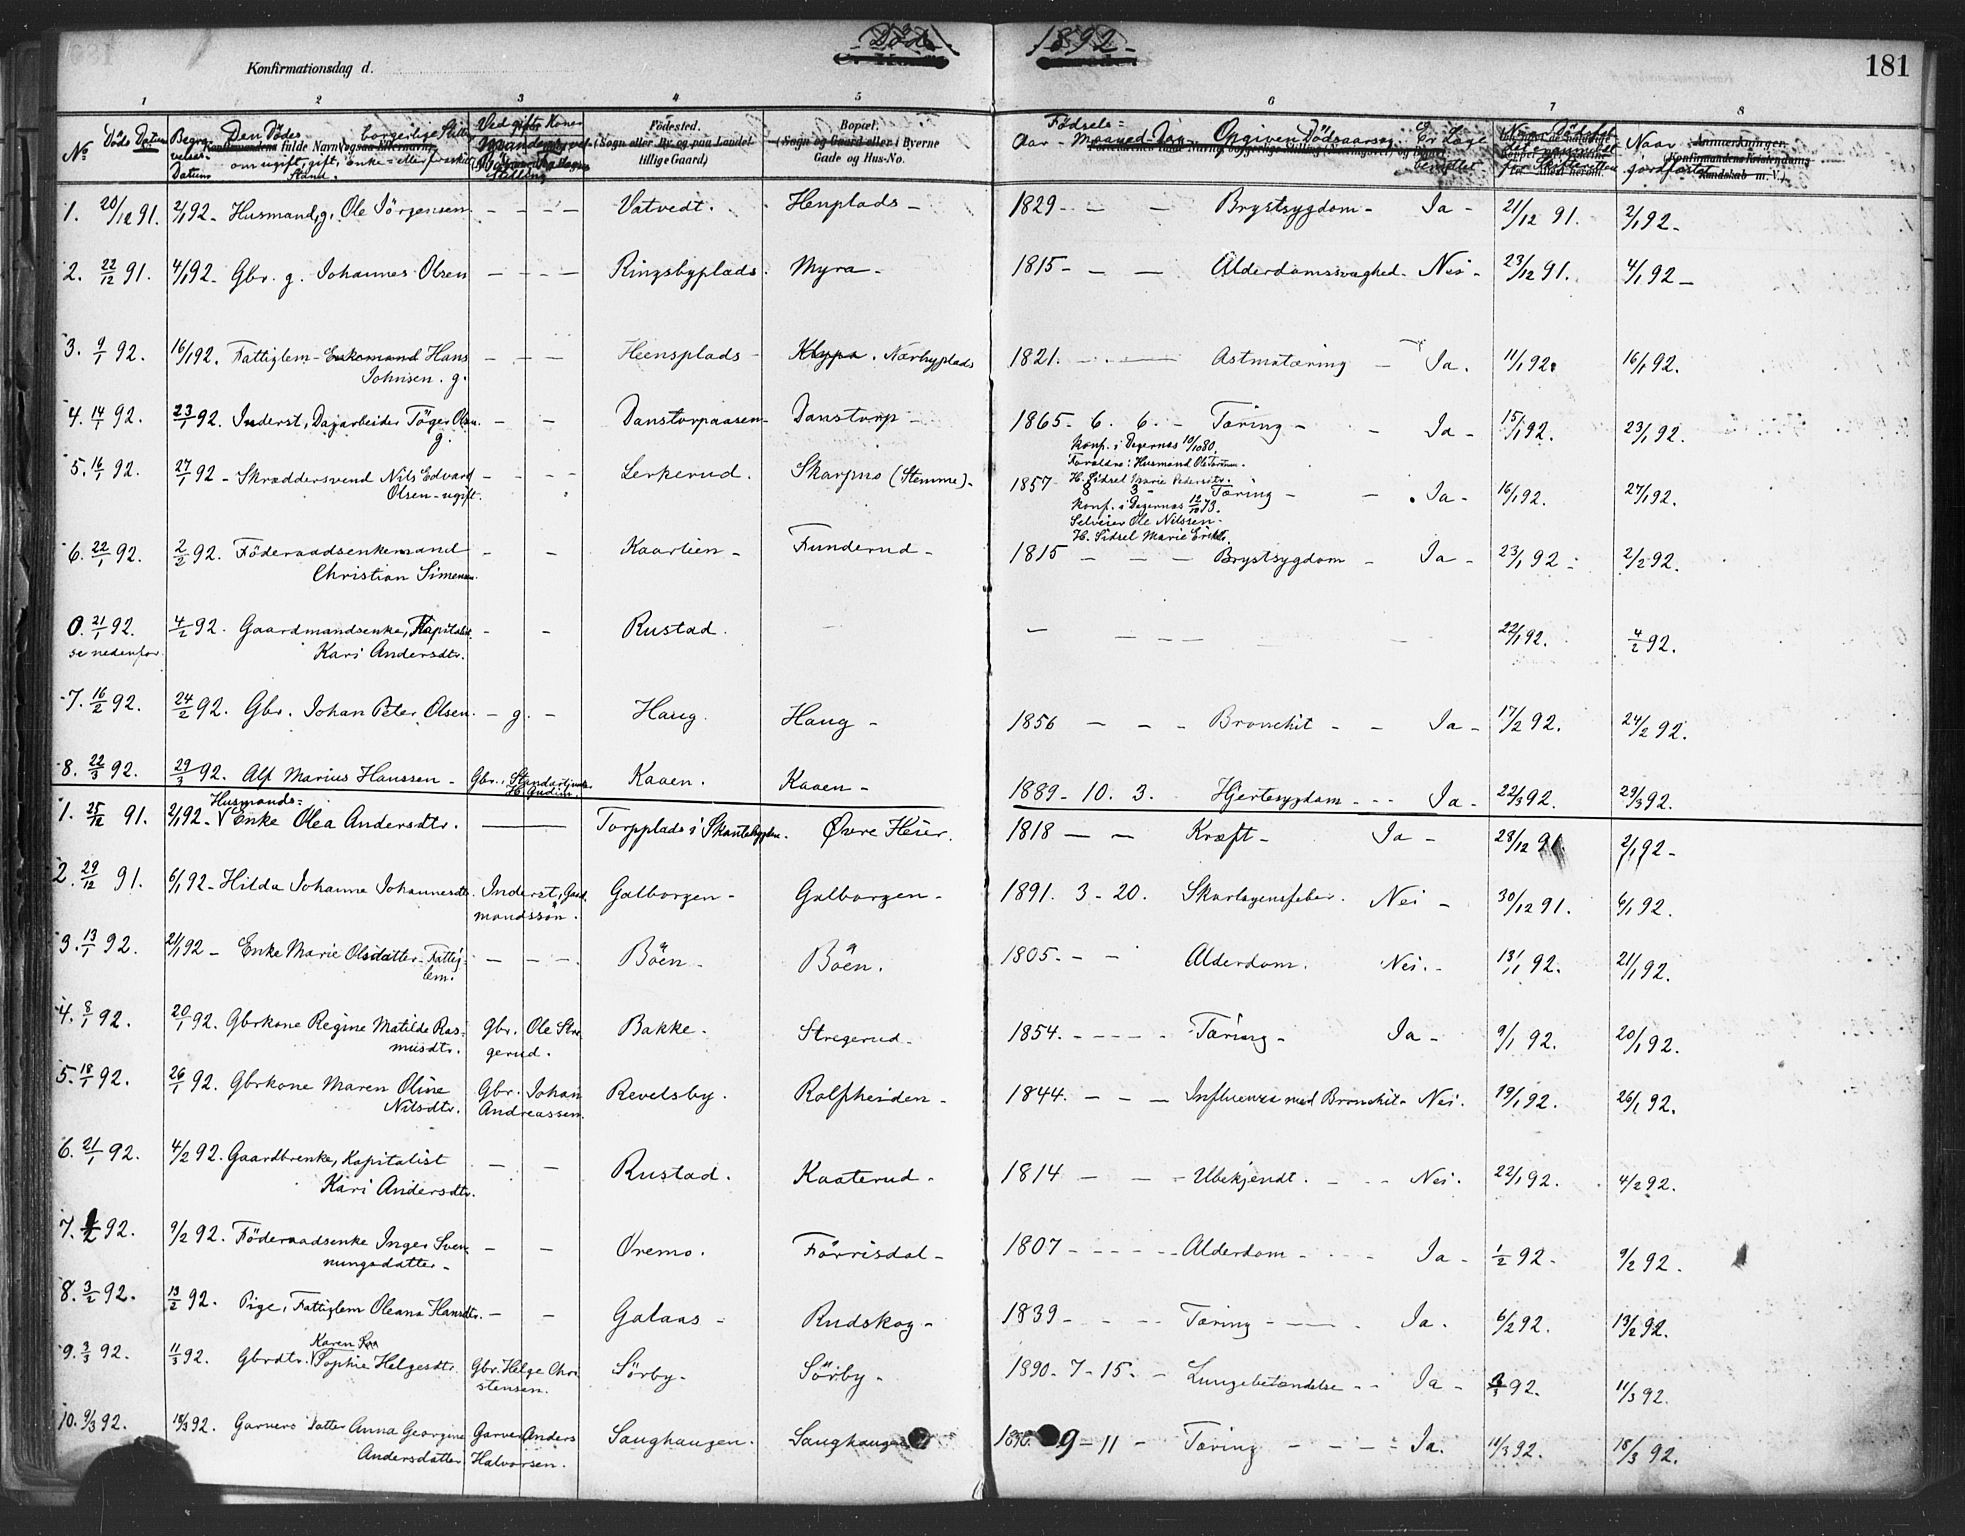 Døde 1892 181
Konfirmationsdag d.
1 2 3 4 5 6 7 8
№ Döds Datum Begravelses Datum Den Dödes fulde Navn borgerlige Stilling
om ugift, gift, enke- eller fraskilt Stand.
Födested. (Sogn eller By og paa Landet tillige Gaard)
Bopæl. (Sogn og Gaard eller i Byerne Gade og Hus-No.
Födsels= Aar - Maaned Dag Opgiven Dödsaarsag Er Læge benyttet
Naar jordfæstet
1. 20/12 91. 2/1 92. Husmand, g. Ole Jörgensen - - - - Vatvedt. Henplads - 1829 - - - Brystsygdom - Ja - 21/12 91. 2/1 92.
2. 22/12 91. 4/1 92. Gbr. g. Johannes Olsen - - - - Ringsbyplads. Myra - 1815 - - - Alderdomssvaghed - Nei - 23/12 91. 4/1 92 -
3. 9/1 92. 16/1 92. Fattiglem - Enkemand Hans - - - Heensplads - Klypa. Nærbyplads 1821. - - Astmatæring - Ja. 11/1 92. 16/1 92.
Johnsen. g.
4. 14/1 92. 23/1 92. Inderst, Dagarbeider Törger Olsen. - - Danstorpaasen - Danstorp - 1865 - 6. 6. - Tæring - - Ja - 15/1 92. 23/1 92.
g. konf. i Degernes 10/10 80.
Forældre: Husmand Ole
H. Sidsel Marie Pedersdtr.
5. 16/1 92. 27/1 92 - Skræddersvend Nils Edvard - - - - Lerkerud. Skarpno (Stemme). - 1857 8 3 - Tæring - - Ja - 16/1 92. 27/1 92.
Olsen - ugift. konf. i Degernes 12/10 73.
Selveier Ole Nilssen -
H. Sidsel Marie Eriksdtr.
6. 22/1 92. 2/2 92. Föderaadsenkemand - - Kaarlien - Funderud - 1815 - - - Brystsygdom - Ja - 23/1 92 - 2/2 92.
Christian Simensen.
0. 21/1 92. 4/2 92. Gaardmandsenke, Kapitalist. - - Rustad. - - - - - 22/1 92. 4/2 92.
se nedenfor. Kari Andersdtr.
7. 16/2 92. 24/2 92. Gbr. Johan Peter Olsen. - g. - Haug. Haug - 1856 - - - Bronchit - - Ja - 17/2 92. 24/2 92.
8. 22/3 92. 29/3 92. Alf Marius Hanssen - Gbr., Kaaen. Kaaen - 1889 - 10. 3. Hjertesygdom - - - Ja - 22/3 92. 29/3 92.
Husmands=
1. 25/12 91. 2/1 92. Enke Olea Andersdtr. - Torpplads i Skantebygden. Övre Heier. 1818 - - Kræft - Ja - 28/12 91. 2/1 92 -
2. 29/12 91. 6/1 92 - Hilda Johanne Johannesdtr. Inderst, Gaard Galborgen - Galborgen - 1891. 3 - 20. Skarlagensfeber. Nei - 30/12 91. 6/1 92.
mandssön.
3. 13/1 92. 21/1 92 - Enke Marie Olsdatter - Fattig- - - - Böen - Böen. 1805. - - Alderdom. Nei. - 13/1 92. 21/1 92.
lem.
4. 8/1 92. 20/1 92. Gbrkone Regine Matilde Ras- Gbr. Ole Stre Bakke. Stregerud - 1854. - - - - Tæring - Ja - 9/1 92. 20/1 92.
musdtr. gerud.
5. 18/1 92. 26/1 92. Gbrkone Maren Oline Gbr. Johan Revelsby. Rolfheiden - 1844. - - - Influenza med Bronchit - Nei. 19/1 92. 26/1 92.
Nilsdtr. Andreassen.
6. 21/1 92. 4/2 92. Gaardbrenke, Kapitalist - - Rustad. Kaaterud - 1814 - - - Ubekjendt. - - - Nei. 22/1 92. 4/2 92.
Kari Andersdtr.
7. 1/2 92. 9/2 92. Föderaadsenke Inger Sven- - - Vremo. Förrisdal - 1807 - - - - - Alderdom - - - Ja - 1/2 92 - 9/2 92.
nungsdatter -
8. 3/2 92. 13/2 92. Pige, Fattiglem Oleana Hansdtr. - - Galaas - Rudskog - 1839 - - - - Tæring - - - Ja. 6/2 92. 13/2 92.
Karen
9. 3/3 92. 11/3 92. Gbrdtr. Sophie Helgesdtr. Gbr. Helge Chri Sörby - Sörby - 1890 - 7 - 15. - Lungebetændelse - - Ja - 3/3 92. 11/3 92.
stensen.
10. 9/3 92. 18/3 92. Garvers Datter Anna Georgine Garver Anders Saughaugen. Saughaugen 1890. 9 - 11 - Tæring - - - - Ja. 11/3 92. 18/3 92.
Andersdatter Halvorsen.